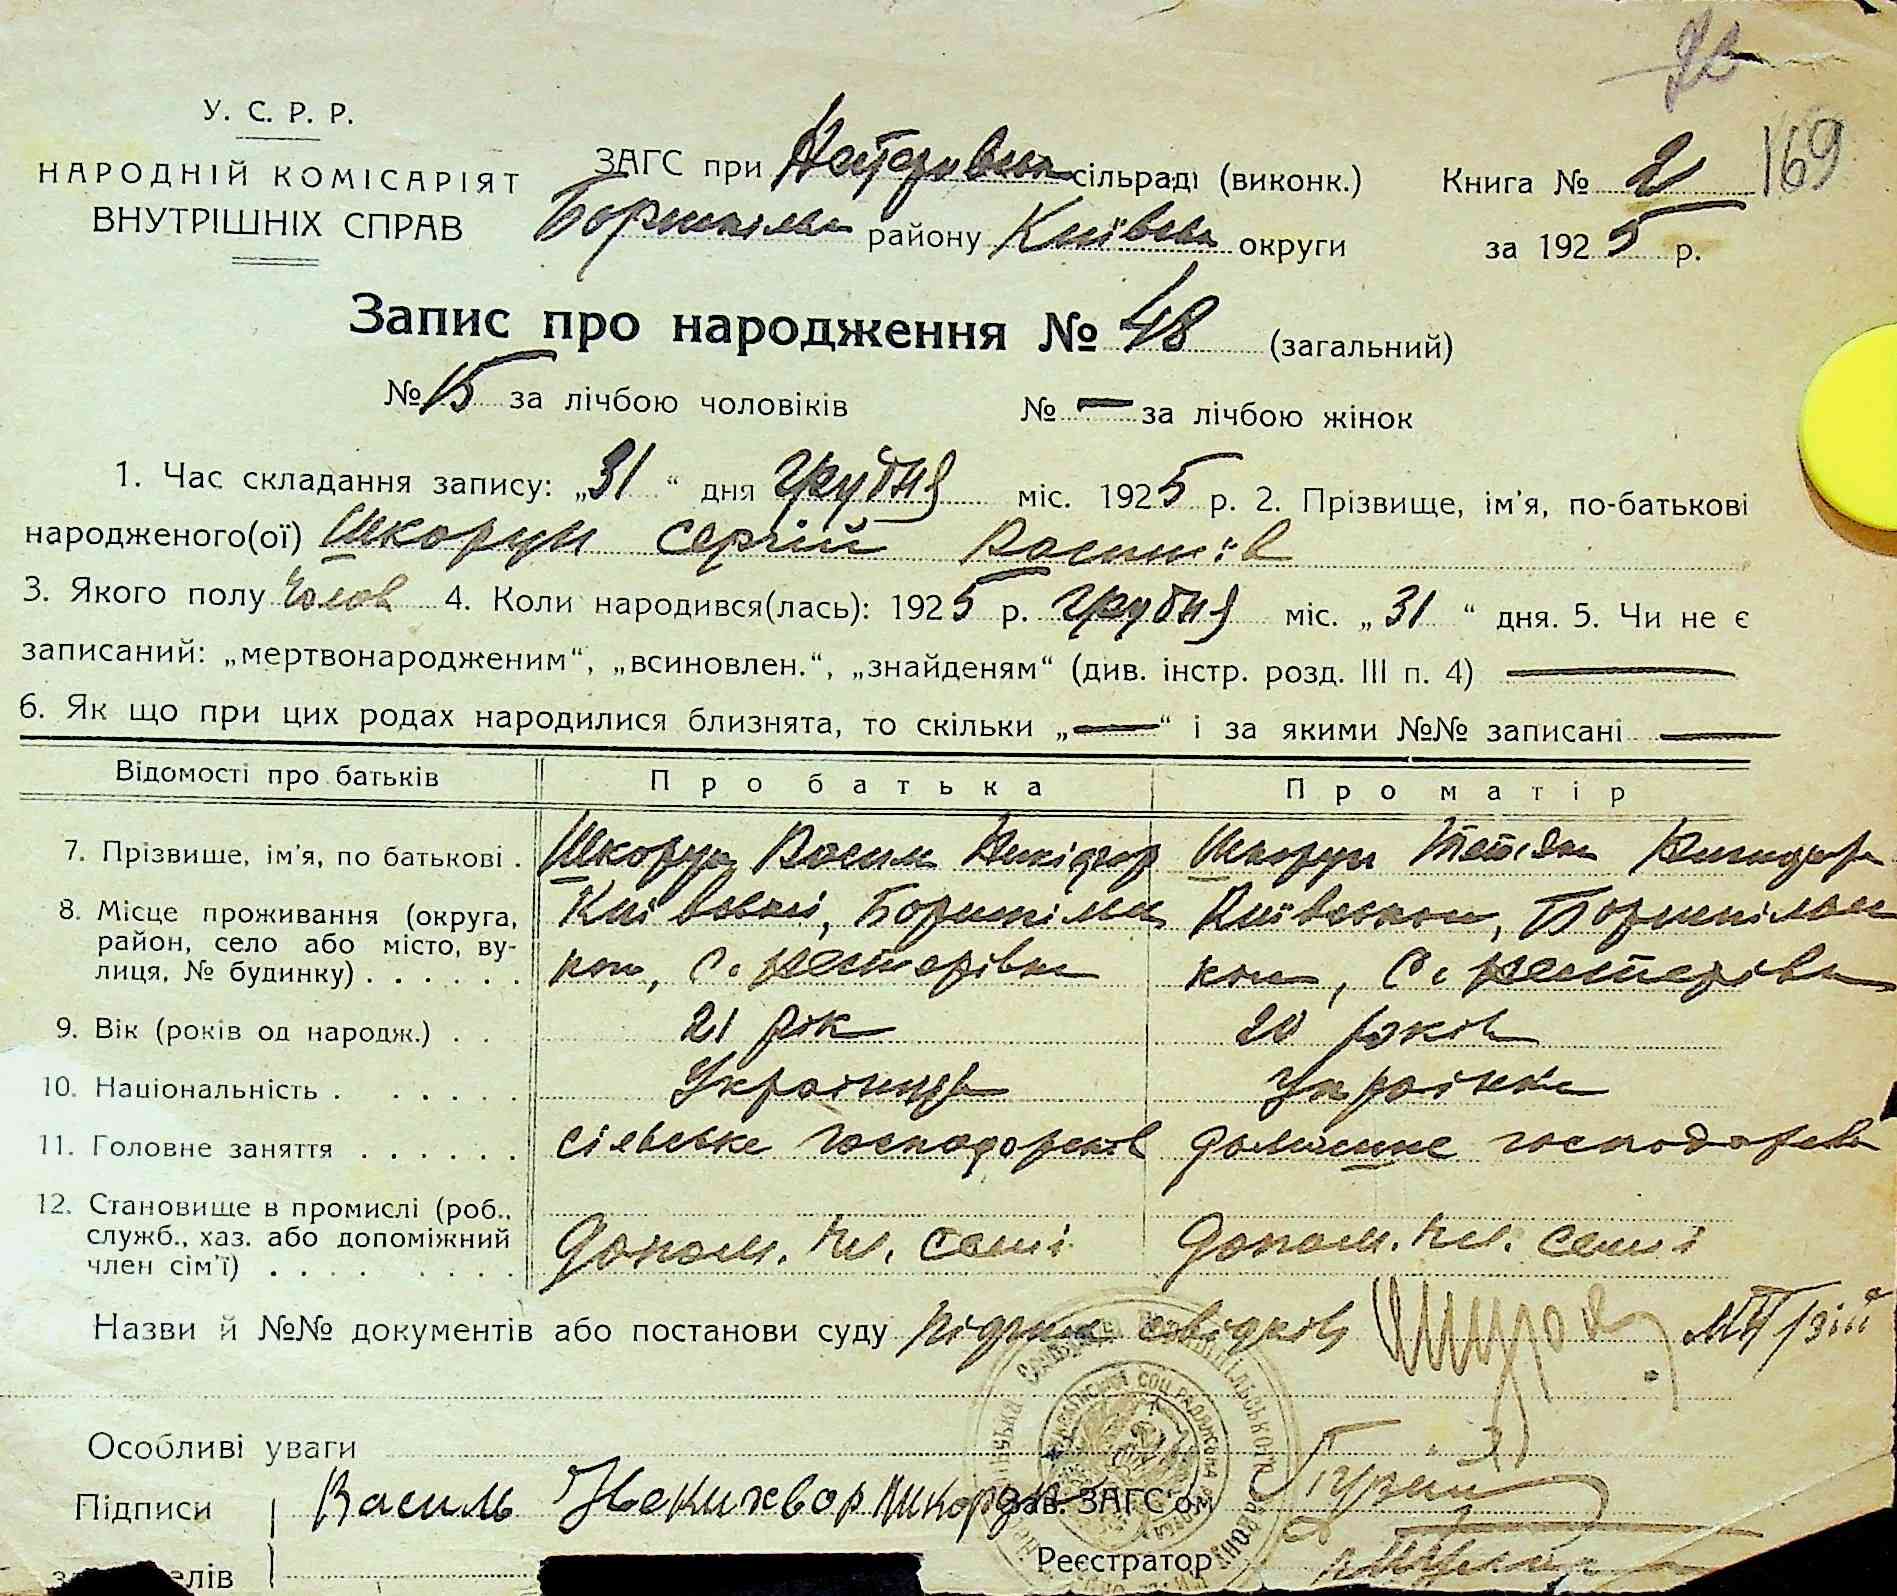 169
У. С. Р. Р.
НАРОДНІЙ КОМІСАРІЯТ
ВНУТРІШНІХ СПРАВ
ЗАГС при сільраді (виконк.)
району Київськ округи
Книга № 2
за 1925 р.
Запис про народження № 48 (загальний)
№ 15 за лічбою чоловіків № — за лічбою жінок
1. Час складання запису: „31“ дня грудня міс. 1925 р. 2. Прізвище, ім'я, по-батькові
народженого(ої) Шкорун Сергій Васильїв
3. Якого полу Чолов 4. Коли народився(лась): 1925 р. грудня міс. „31“ дня. 5. Чи не є
записаний: „мертвонародженим“, „всиновлен.“, „знайденям“ (див. інстр. розд. III п. 4) —
6. Як що при цих родах народилися близнята, то скільки „—“ і за якими №№ записані —
Відомості про батьків Про батька Про матір
7. Прізвише, ім'я, по батькові . Шкорун Васил Шкорун Тетян
8. Місце проживання (округа,
район, село або місто, ву-
лиця, № будинку) . . . . . .
с. Нестерівка
с. Нестерівка
9. Вік (років од народж.) . . 21 рік 20 років
10. Національність . . . . . . Українець Українка
11. Головне заняття . . . . . . сільське господарств домашнє господарств
12. Становище в промислі (роб.,
служб., хаз. або допоміжний
член сім'ї) . . . . . . . .
допом. чл. семі допом. чл. семі
Назви й №№ документів або постанови суду свідків
Особливі уваги
Підписи Василь Шкорун Зав. ЗАГС'ом
Реєстратор